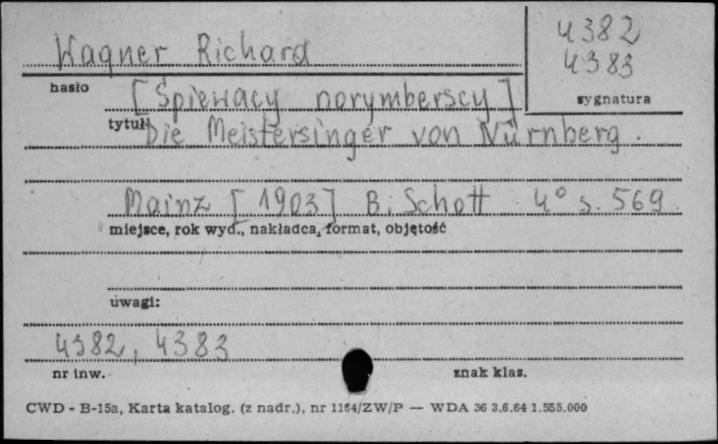 4382
4383
Wagner Richard
hasło
[Śpiewacy norymberscy]
sygnatura
tytuł
Die Meistersinger von Nürnberg.
Mainz [1903] B. Schott 4° s. 569
miejsce, rok wyd., nakładca, format, objętość
uwagi:
4382, 4383
nr inw.
znak klas.
CWD - B-15a, Karta katalog. (z nadr.), nr 1164/ZW/P — WDA 36 3.6.64 1.555.000